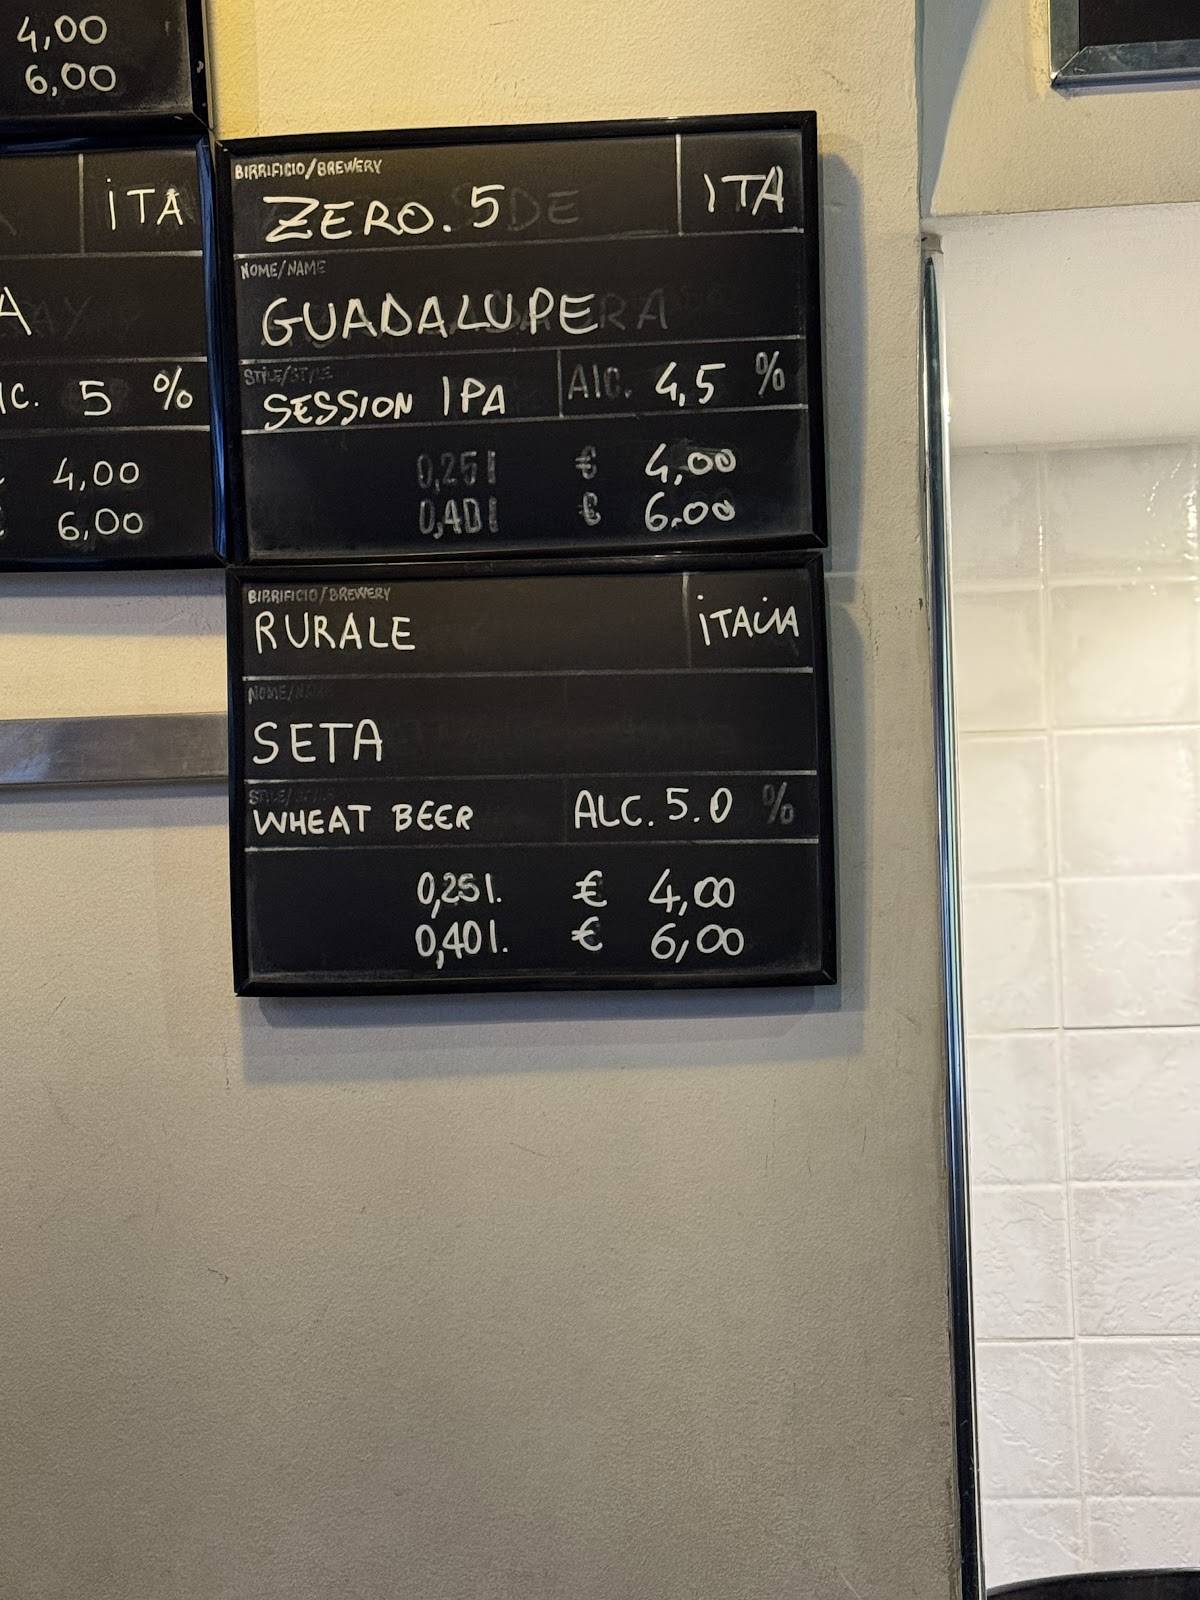 4,00
6,00
ITA
A
lc. 5 %
4,00
6,00
BIRRIFICIO/BREWERY
ZERO.5
ITA
NOME/NAME
GUADALUPE
STILE/STYLE
SESSION IPA
Alc. 4,5 %
0,25 l € 4,00
0,40 l € 6.00
BIRRIFICIO/BREWERY
RURALE
ITALIA
NOME/NAME
SETA
STILE/STYLE
WHEAT BEER
ALC. 5.0 %
0,25 l. € 4,00
0,40 l. € 6,00